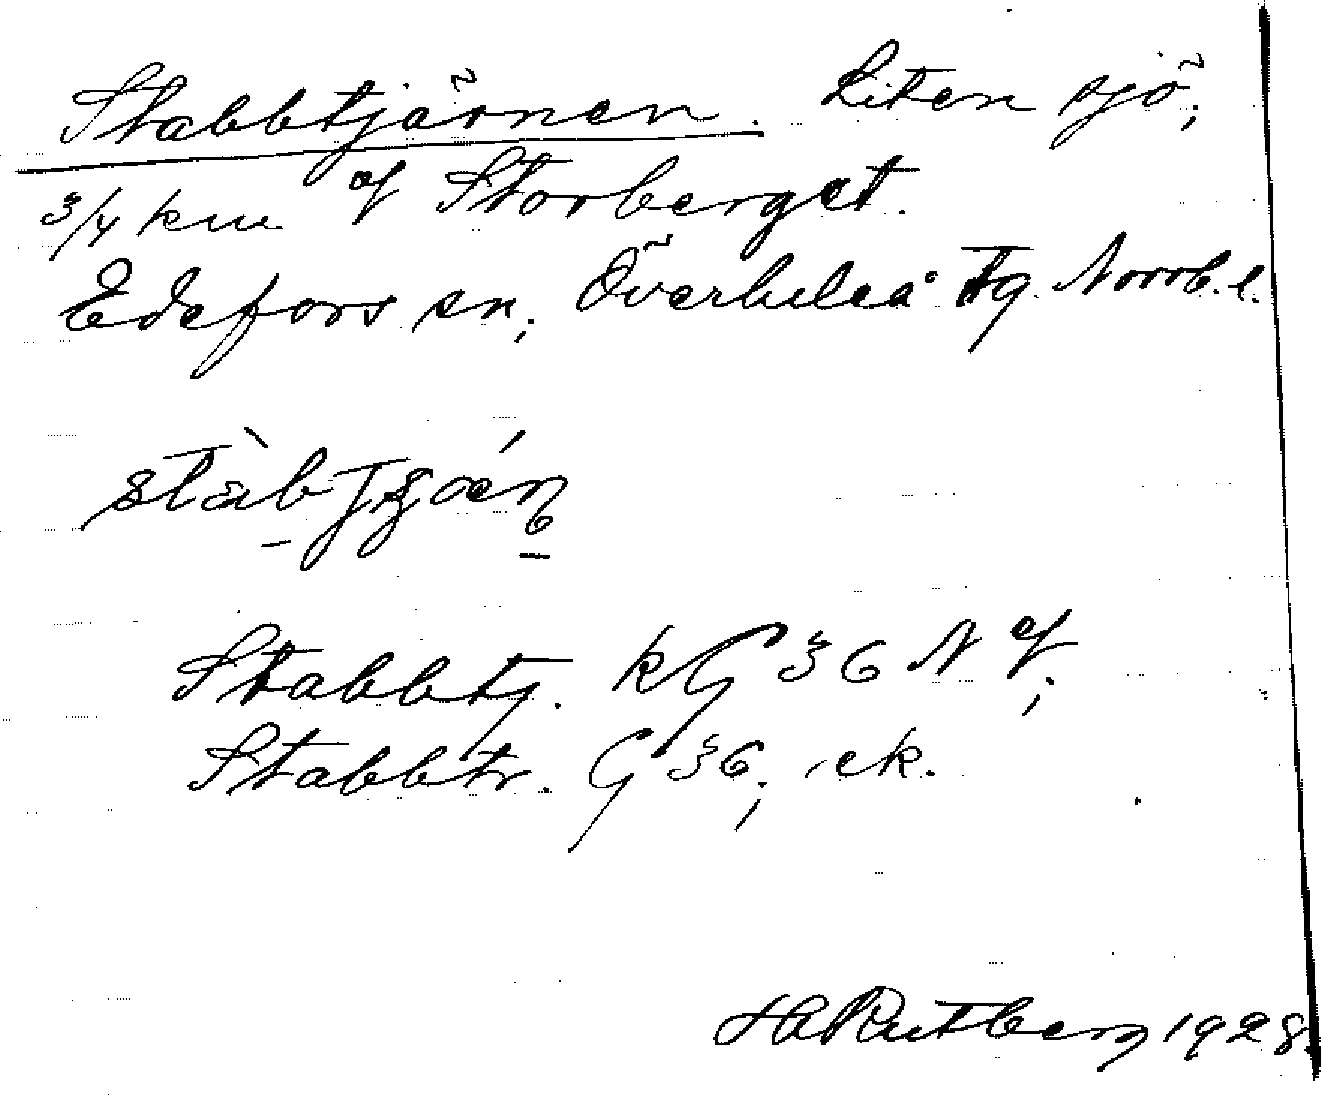 Stabbtjärnen. Liten sjö;
3/4 km öf Storberget.
Edefors sn; Överluleå Tg. Norrb. l.
Stabbtj. kG 36 N öf;
Stabbtr. G 36; ek.
H Rutberg 1928